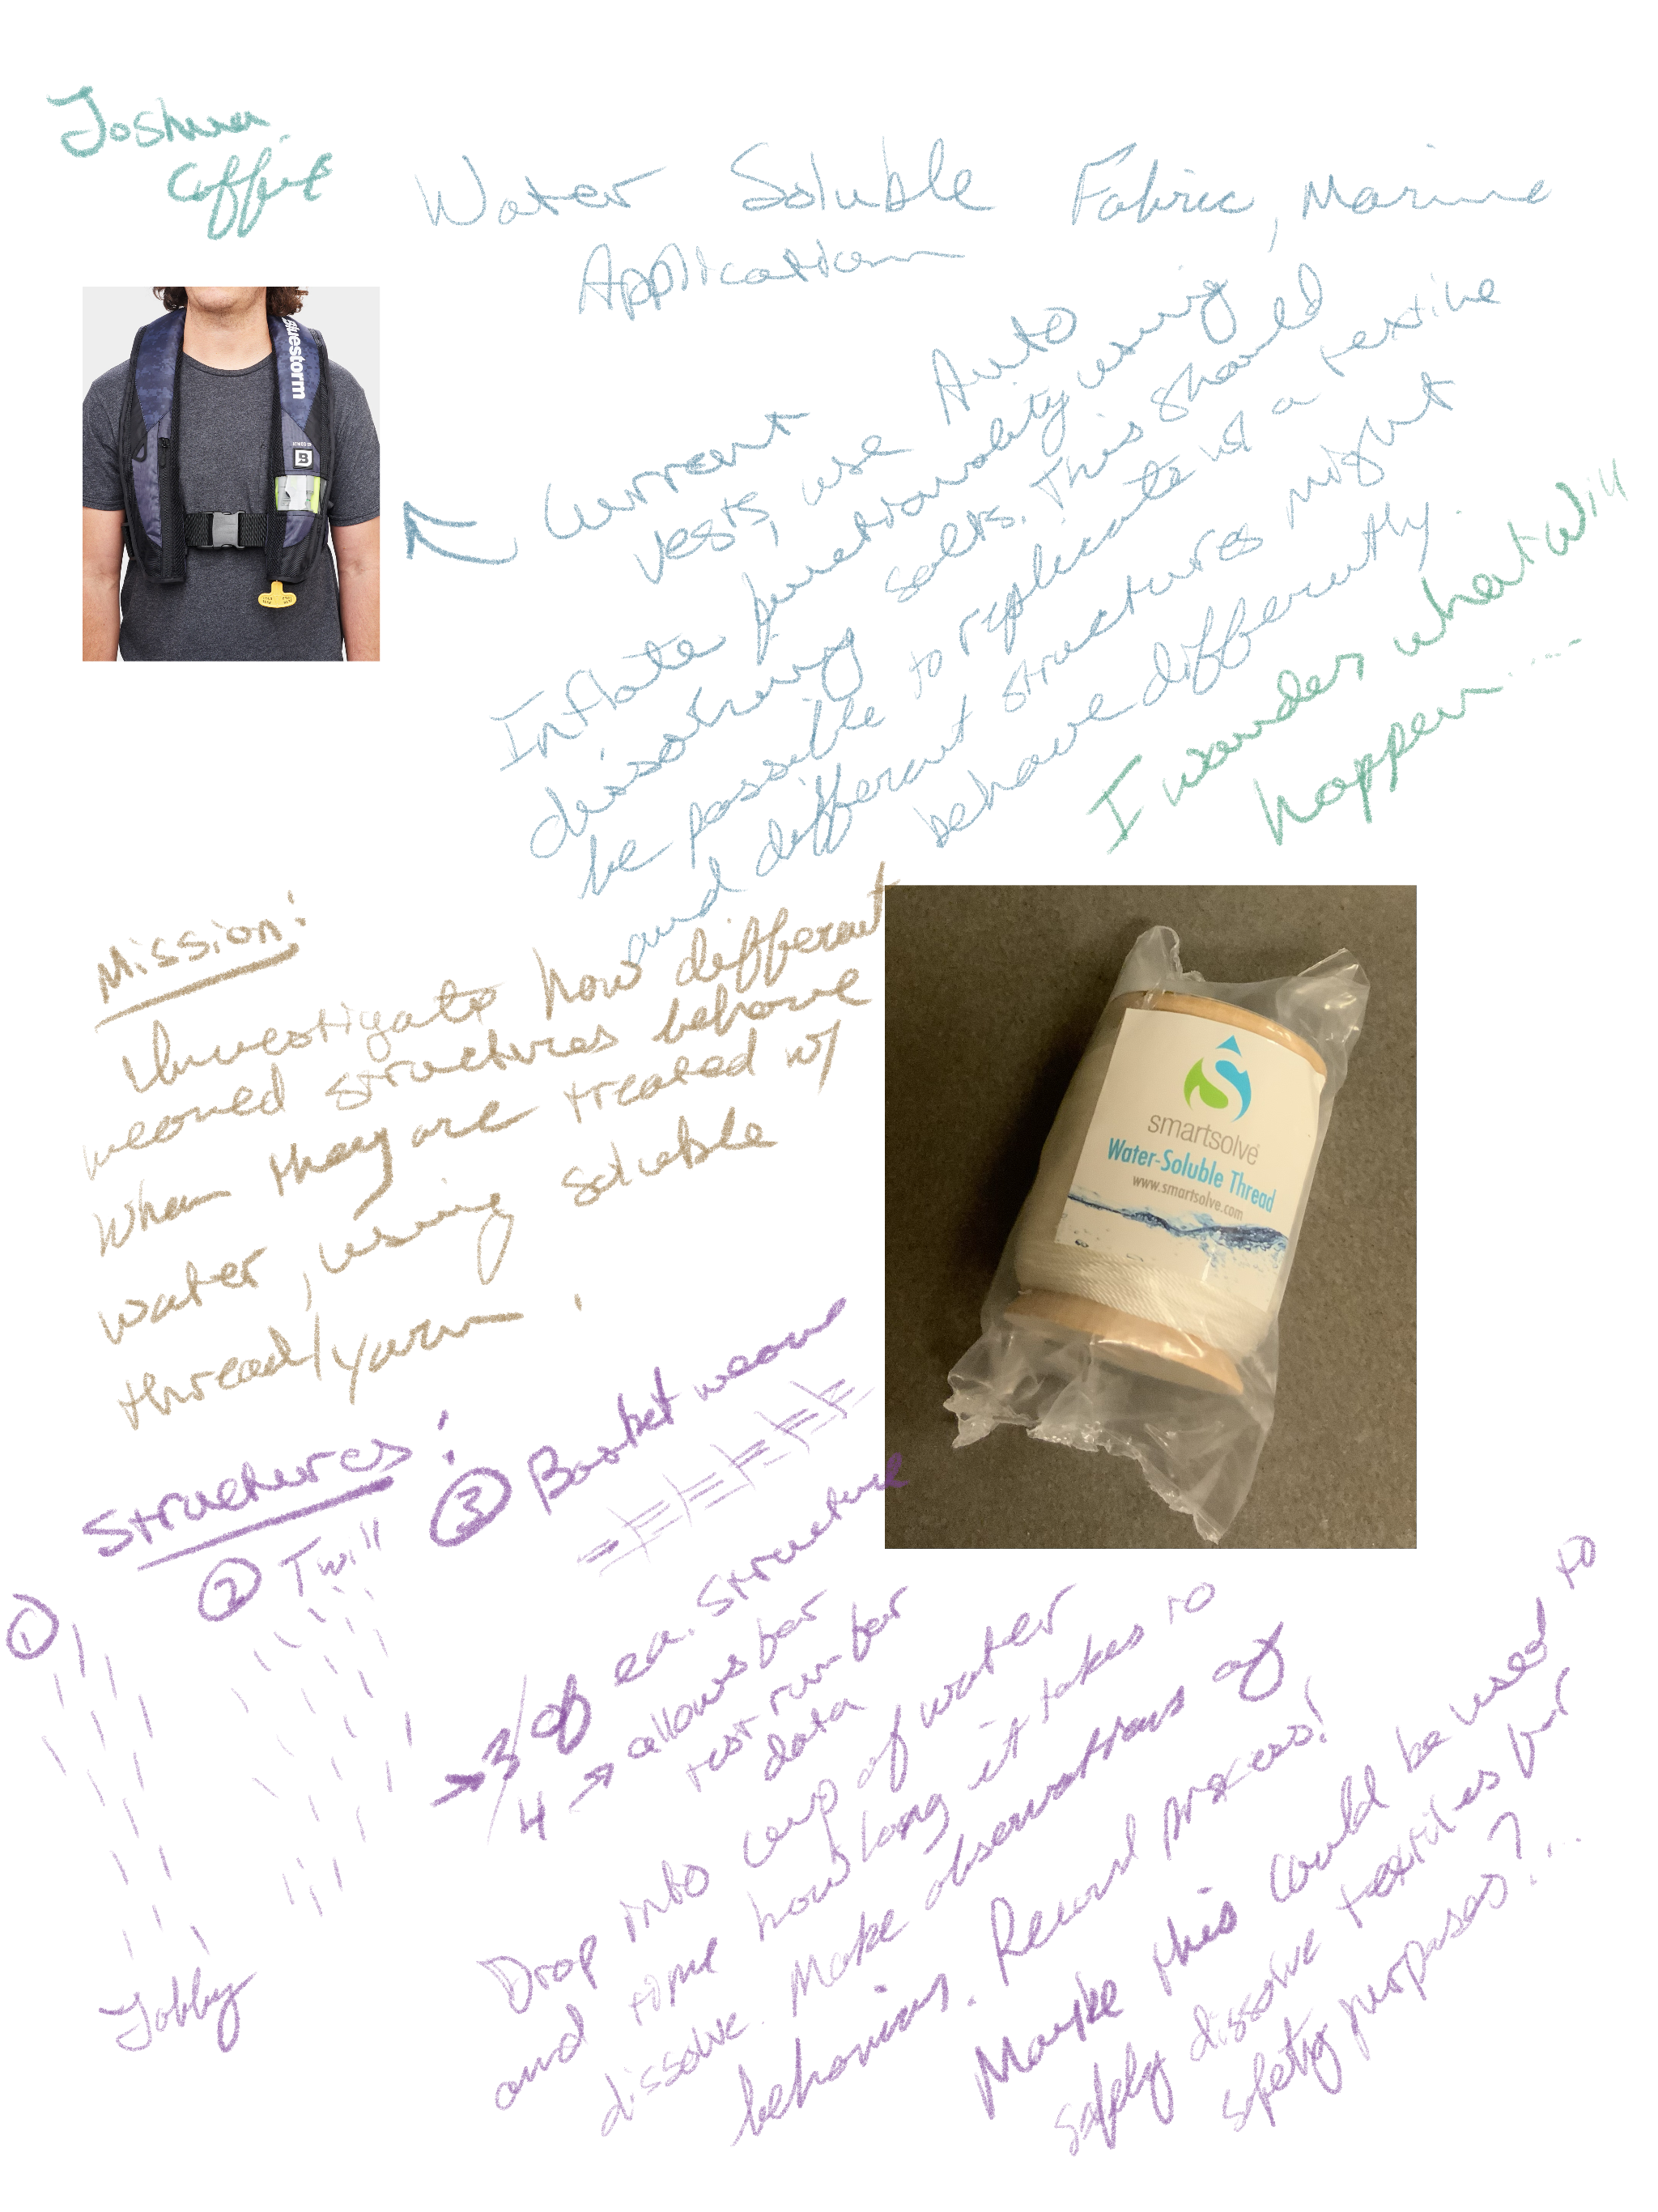 Joshua
Coffie
Water Soluble Fabric, Marine
Application
Bluestorm
B
Current Auto
vests, use
Inflate functionality using
dissolving salts. This should
be possible to replicate w/ a textile
and different structures might
behave differently.
I wonder what will
happen....
Mission:
Investigate how different
weaved structures behave
when they are treated w/
water, using soluble
thread/yarn.
smartsolve
Water-Soluble Thread
www.smartsolve.com
Structures:
① 
② Twill
③ Basket weave
Tabby
→ 3/4 of ea. structure
→ allows for
test run for
data
Drop into cup of water
and time how long it takes to
dissolve. Make observations of
behaviors. Record process!
Maybe this could be used to
safely dissolve textiles for
safety purposes?...